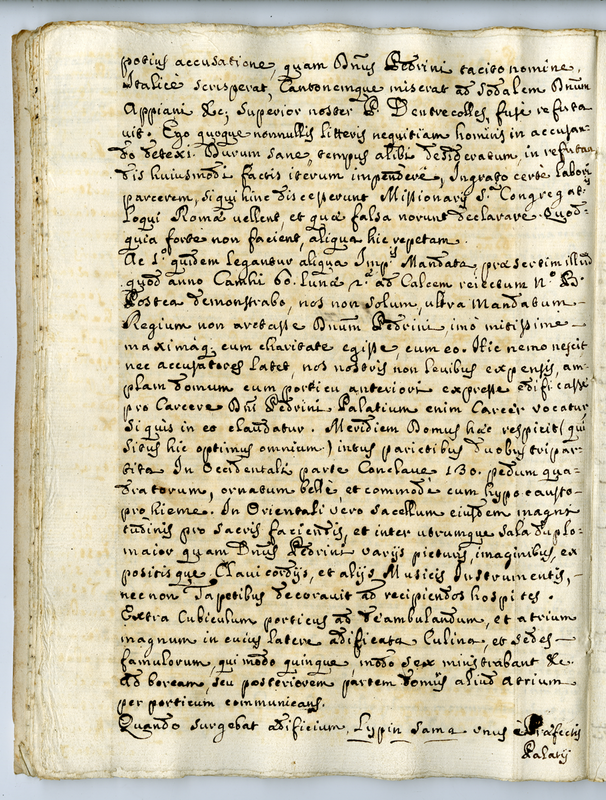 potius accusatione, quam Dnus Pedrini tacito nomine,
Italicè scripserat, Cantonemque miserat ad sodalem Dnum
Appiani &c; Superior noster P. Dentrecolles, fusè refuta
vit. Ego quoque nonnullis litteris nequitiam hominis in accusan-
do detexi. Durum sane, tempus alibi desideratum, in refutan
dis huiusmodi factis iterum impendere, Ingrato certè labori
parcerem, si qui hinc discesserunt Missionarij S. Congregat.
loqui Romæ vellent, et quæ falsa norunt declarare. Quod-
quia fortè non facient, aliqua hic repetam.
Ac 1.º quidem legantur aliqua Imp. Mandata, præsertim illud
quod anno Camhi 60. Lunâ 2.ª ad Calcem reiectum N.º
Postea demonstrabo, nos non solum, ultra Mandatum
Regium non arctasse Dnum Pedrini imò mitissime
maximâq; cum charitate egisse, cum eo. Hic nemo nescit
nec accusatores latet, nos nostris non levibus expensis, am-
plam domum cum porticu anteriori expresse ædificasse
pro Carcere Dni Pedrini Palatium enim Carcer vocatur
si quis in eo claudatur. Meridiem Domus hæc respicit (qui
situs hic optimus omnium) intus parietibus duobus tripar-
tita In Occidentali parte Conclave 130. pedum qua-
dratorum, ornatum bellè, et commodè cum hypocausto
pro hieme. In Orientali vero sacellum eiusdem magni
tudinis pro sacris faciendis, et inter utrumque sala duplo
maior quam Dnus Pedrini varijs picturis, imaginibus, ex
positisque Clavicordijs, et alijs Musicis Instrumentis,
nec non Tapetibus decoravit ad recipiendos hospites.
Extra Cubiculum porticus ad deambulandum, et atrium
magnum in cuius latere ædificata Culina, et sedes
famulorum, qui modo quinque, modo sex ministrabant &c.
Ad boream, seu posteriorem partem domus aliud atrium
per porticum communicans.
Quando surgebat ædificium, Lypin Sama unus è Præfectis
Palatij